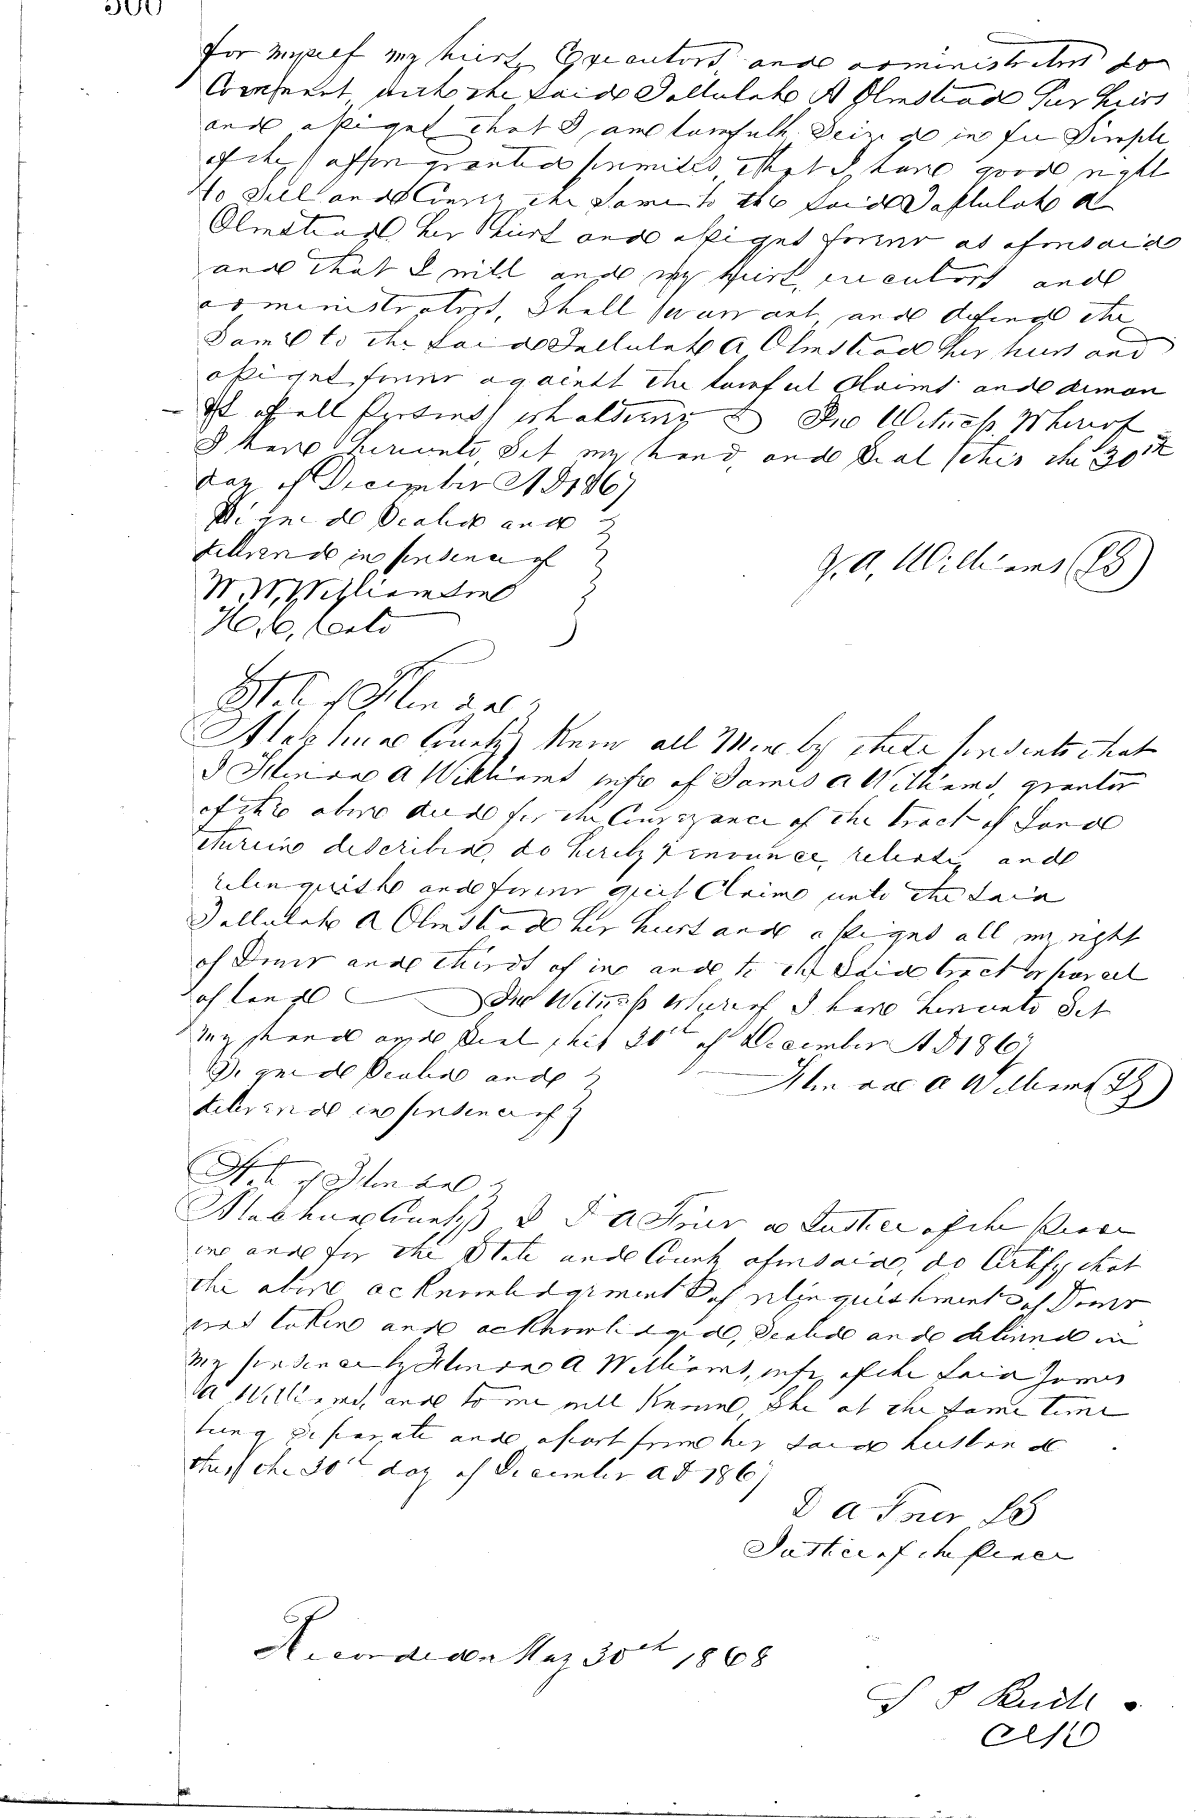 500
for myself my heirs Executors and administrators do
Covenant with the said Tallulah A Olmstead her heirs
and assigns that I am lawfully Seized in fee Simple
of the afore granted premises, that I have good right
to Sell and Convey the Same to the said Tallulah A
Olmstead her heirs and assigns forever as aforesaid
and that I will and my heirs, executors and
administrators, Shall warrant and defend the
Same to the said Tallulah A Olmstead her heirs and
assigns forever against the lawful Claims and deman
ds of all Persons whatsoever In Witness Whereof
I have hereunto Set my hand, and Seal this the 30th
day of December A D 1867
Signed Sealed and
delivered in presence of
J. A. Williams (LS)
W. W. Williamson
H. C.
State of Florida
Alachua County Know all Men by these presents that
I A Williams wife of James A Williams, grantor
of the above deed for the Conveyance of the tract of Land
therein described, do hereby renounce, release, and
relinquish and forever quit Claim unto the said
Tallulah A Olmstead her heirs and assigns all my right
of Dower and thirds of in and to the Said tract or parcel
of land In Witness whereof I have hereunto Set
my hand and Seal this 30th of December A D 1867
Signed Sealed and
A Williams (LS)
delivered in presence of
State of Florida
Alachua County I A a Justice of the Peace
in and for the State and County aforesaid, do Certify that
the above acknowledgement of relinquishment of Dower
was taken and acknowledged, Sealed and delivered in
my presence by A Williams, wife of the said James
A Williams, and to me well Known, She at the same time
being Separate and apart from her said husband
this the 30th day of December A D 1867
A LS
Justice of the Peace
Recorded May 30th 1868
Clk